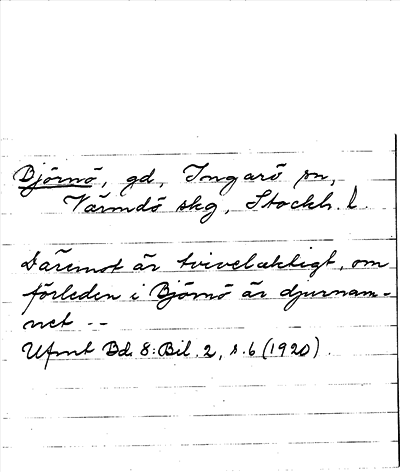 Björnö, gd, Ingarö sn,
Värmdö skg, Stockh. l.
Däremot är tvivelaktigt, om
förleden i Björnö är djurnam-
net --
Ufmt Bd. 8: Bil. 2, s. 6 (1920).